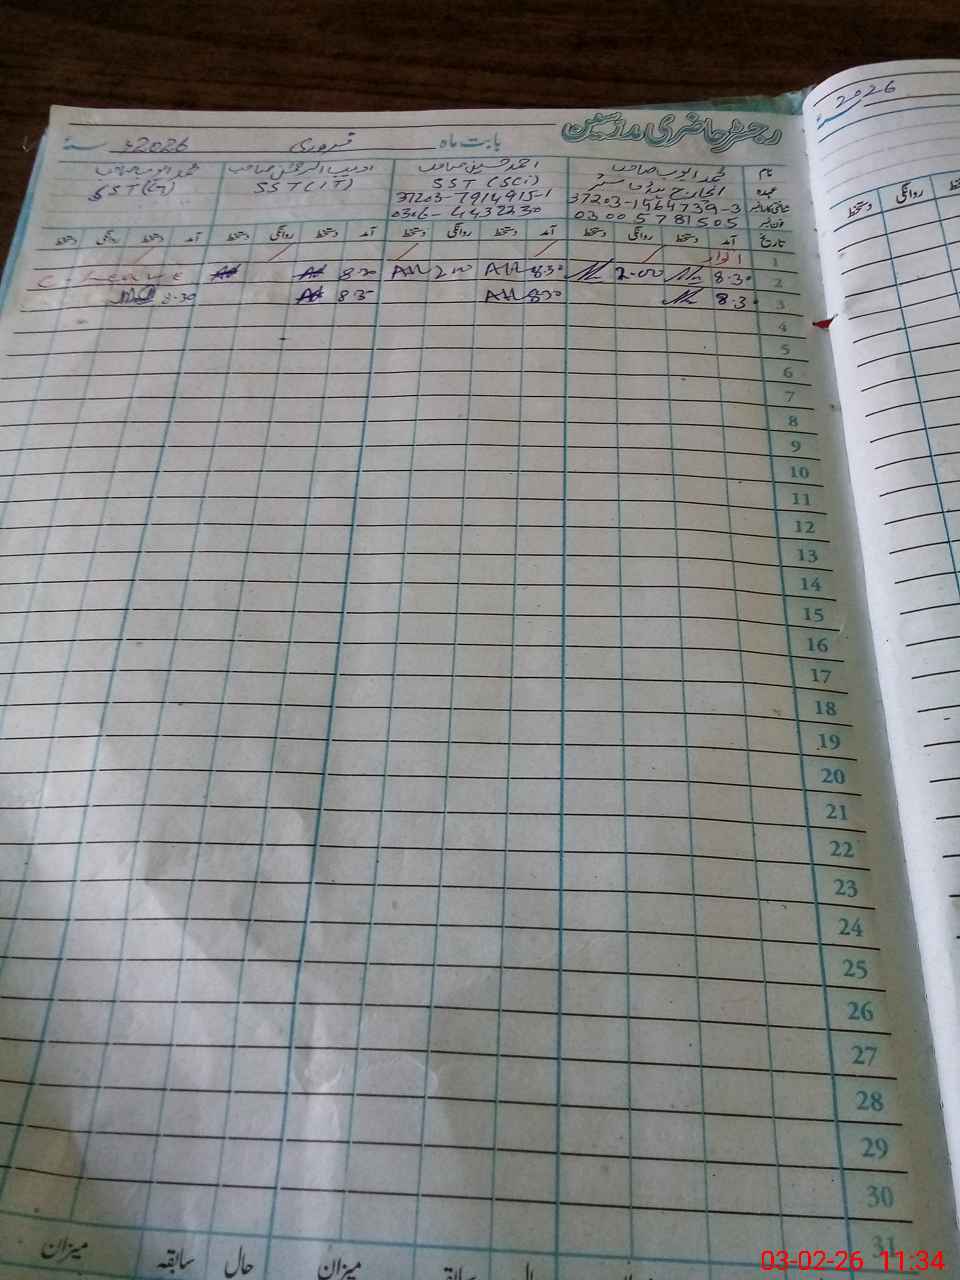 رجسٹر حاضری مدرسین
بابت ماہ فروری 2026ء سنہ
نام محمد ایوب صاحب احمد حسین صاحب ادیب الرحمٰن صاحب محمد صاحب
عہدہ انچارج ہیڈ ماسٹر SST (SCi) SST (IT) SST (G)
شناختی کارڈ نمبر 37203-1464739-3 37203-7914915-1
فون نمبر 03005781505 0306-4432230
تاریخ آمد دستخط روانگی دستخط آمد دستخط روانگی دستخط آمد دستخط روانگی دستخط آمد دستخط روانگی دستخط
1 اتوار
2 8.30 2.00 8.30 2.00 8.30 C. Leave
3 8.30 8.30 8.35 8.30
4
5
6
7
8
9
10
11
12
13
14
15
16
17
18
19
20
21
22
23
24
25
26
27
28
29
30
31
میزان سابقہ حال میزان
2026
سنہ
روانگی دستخط
03-02-26 11:34